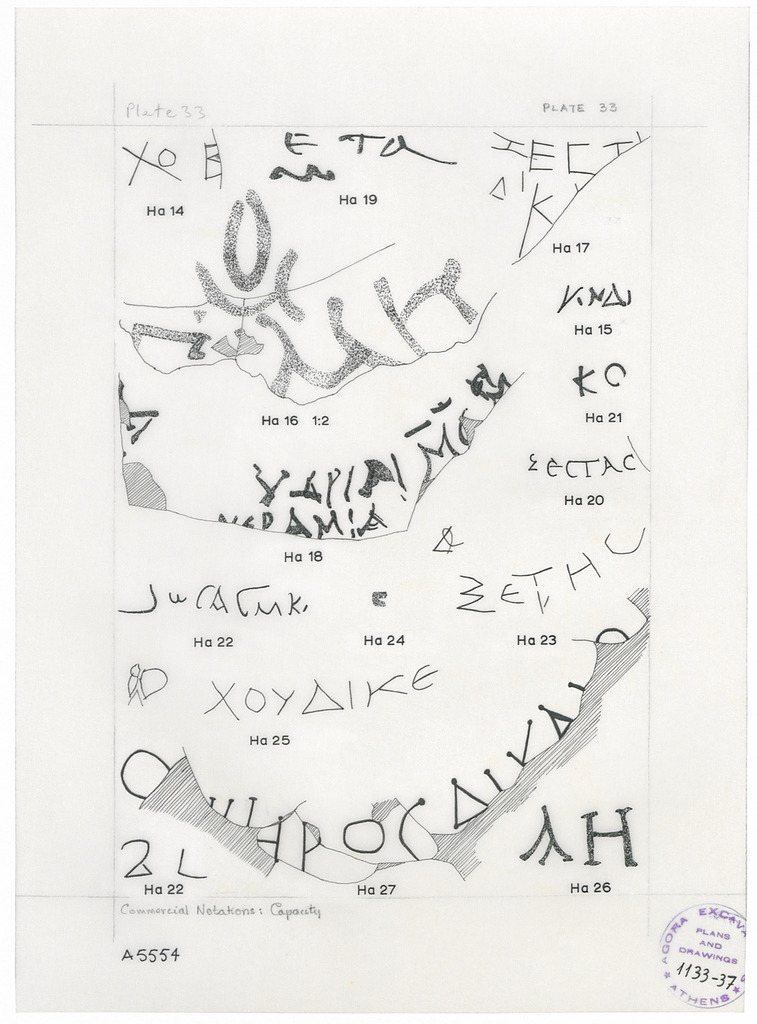 Plate 33
PLATE 33
ΧΟ Β
Ha 14
Ε ΤΑ
Ha 19
ΞΕCΤ
ΔΙ
Κ
Ha 17
Ha 15
Ha 16 1:2
ΚΟ
Ha 21
ΞΕCΤΑC
Ha 20
ΥΔΡΙΑΙ
ΚΕΡΑΜΙΑ
Ha 18
Ha 22
Ε
Ha 24
ΞΕΤΗC
Ha 23
ΧΟΥΔΙΚΕ
Ha 25
ΗΡΟC ΔΙΚΑΙ
Ha 22
Ha 27
ΛΗ
Ha 26
Commercial Notations: Capacity
A5554
AGORA EXCAVS
PLANS
AND
DRAWINGS
1133-37
ATHENS